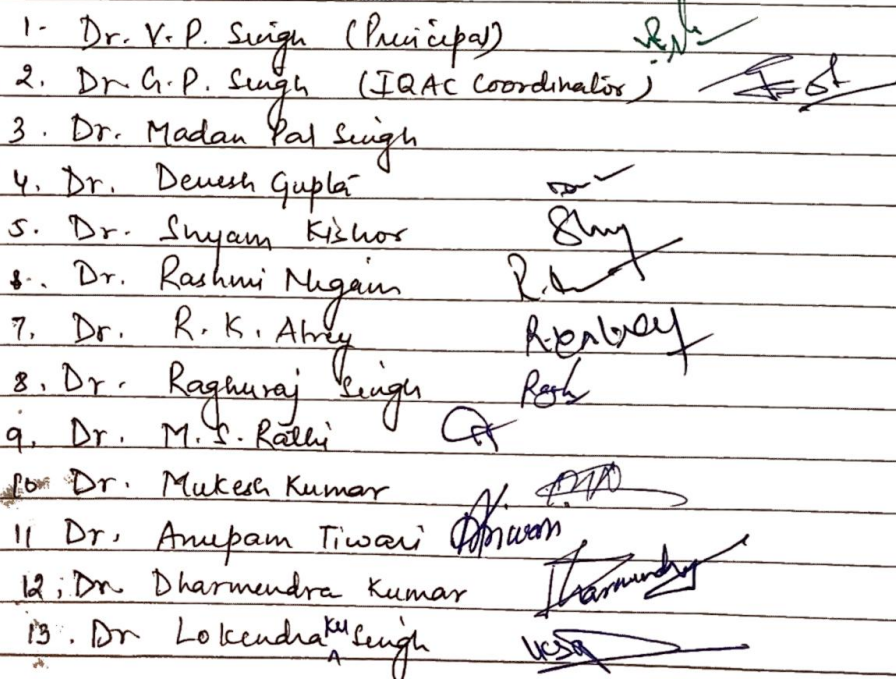 1- Dr. V. P. Singh (Principal)
2. Dr G. P. Singh (IQAC Coordinator)
3. Dr. Madan Pal Singh
4. Dr. Devesh Gupta
5. Dr. Shyam Kishor
6. Dr. Rashmi Nigam
7. Dr. R. K. Atrey
8. Dr. Raghuraj Singh
9. Dr. M. S. Rathi
10 Dr. Mukesh Kumar
11 Dr. Anupam Tiwari
12, Dr Dharmendra Kumar
13. Dr Lokendra Ku Singh